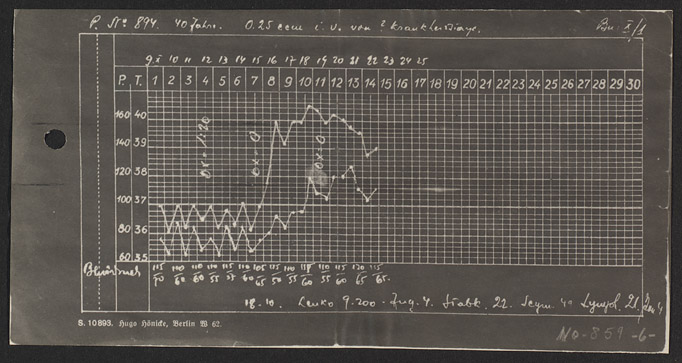 P. No 894. 40 Jahre. 0.25 ccm i. v. von 2 Krankheitstage. Bu. X/1
9.X 10 11 11 12 13 14 15 16 17 18 19 20 21 22 23 24 25
P. T. 1 2 3 4 5 6 7 8 9 10 11 12 13 14 15 16 17 18 19 20 21 22 23 24 25 26 27 28 29 30
160 40
140 39
120 38
100 37
80 36
60 35
OX = 1:20
OX = 0
OX = 0
115/70 110/60 110/60 110/55 115/55 110/60 105/65 120/55 110/55 115/60 110/55 115/60 120/65 115/65
18.10. Leuko 9.200 - Jug. 4. Stabk. 22. Segm. 40 Lymph. 21
S. 10893. Hugo Hönicke, Berlin W 62.
NO-859 -6-